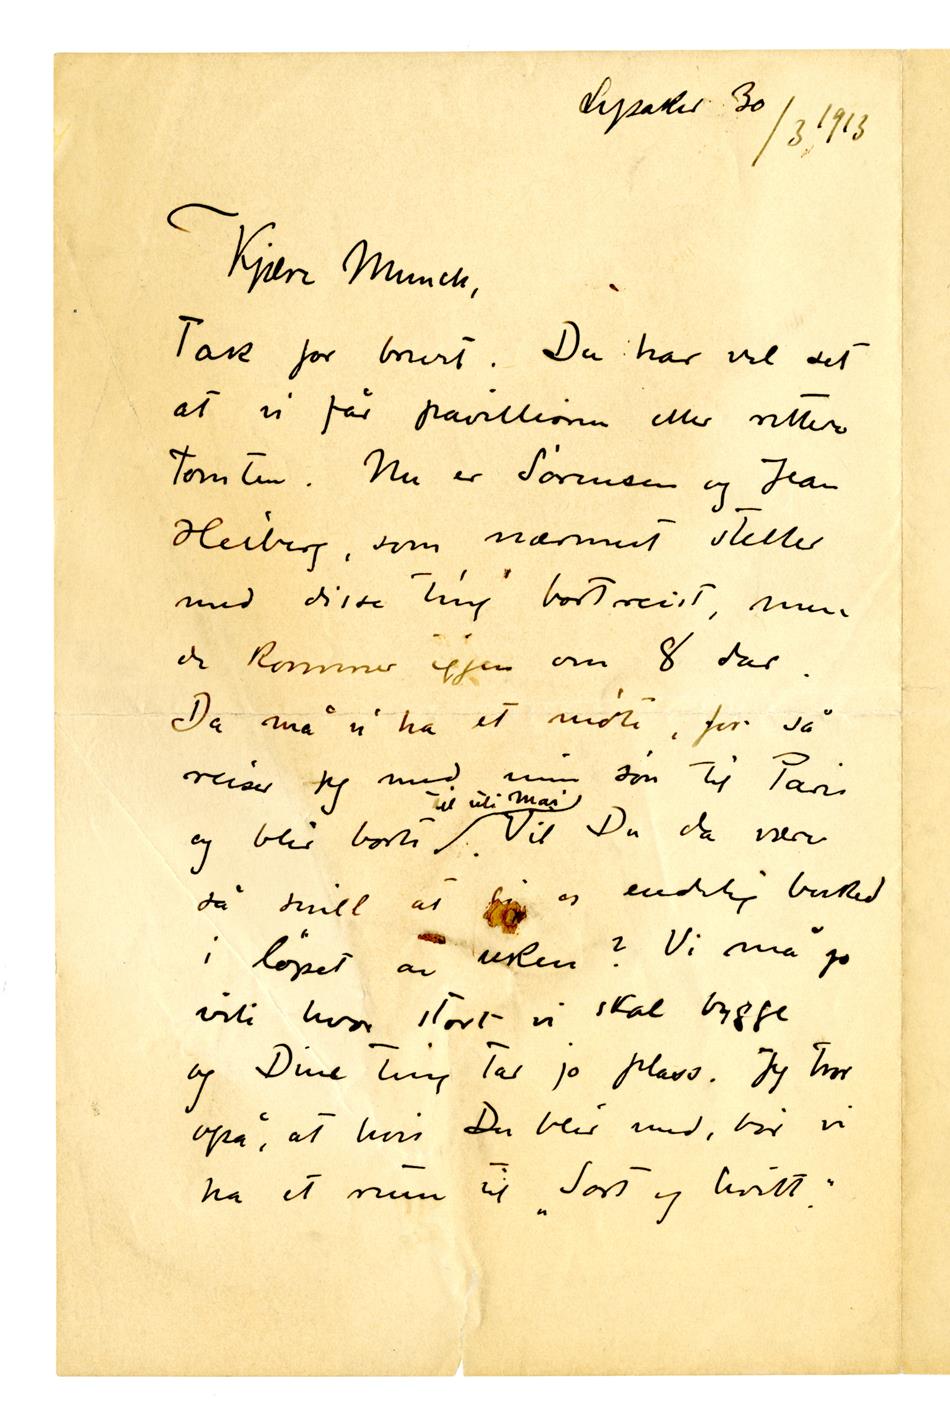 Lysaker 30/3 1913
Kjære Munch,
Tak for brevet. Du har vel set
at vi får pavillionen eller rettere
tomten. Nu er Sörensen og Jean
Heiberg, som nærmest steller
med disse ting bortreist, men
de kommer igjen om 8 dar.
Da må vi ha et möte, for så
reiser jeg med min sön til Paris
og blir borte til uti Mai. Vil Du da være
så snill at gi os endelig besked
i löpet av uken? Vi må jo
vite hvor stort vi skal bygge
og Dine ting tar jo plass. Jeg tror
også, at hvis Du blir med, bör vi
ha et rum til „Sort og hvitt."